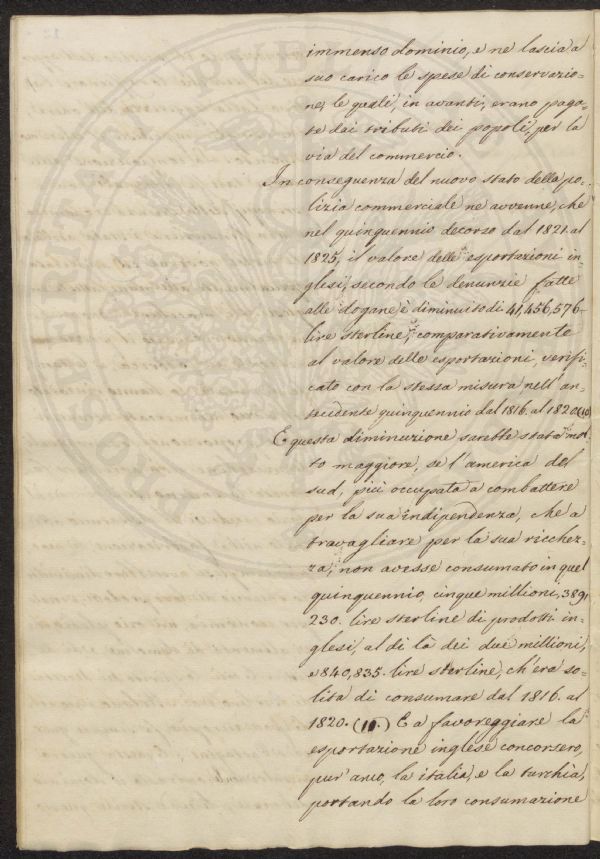 immenso dominio, e ne lascia a
suo carico le spese di conservazio-
ne, le quali, in avanti, erano paga-
te dai tributi dei popoli, per la
via del commercio.
In conseguenza del nuovo stato della po-
lizia commerciale ne avvenne, che
nel quinquennio decorso dal 1821. al
1825, il valore delle esportazioni in-
glesi, secondo le denunzie fatte
alle dogane, è diminuito di 41,456,576-
lire sterline, comparativamente
al valore delle esportazioni, verifi-
cato con la stessa misura nell'an-
tecedente quinquennio dal 1816. al 1820. (10)
E questa diminuzione sarebbe stata mol-
to maggiore, se l'america del
sud, più occupata a combattere
per la sua indipendenza, che a
travagliare per la sua ricchez-
za, non avesse consumato in quel
quinquennio, cinque millioni, 389,
230. lire sterline di prodotti in-
glesi, al di là dei due millioni,
e 840,835. lire sterline, ch'era so-
lita di consumare dal 1816. al
1820. (11.) E a favoreggiare la
esportazione inglese concorsero,
pur' anco, la italia, e la turchia,
portando la loro consumazione
PROSPERITATE